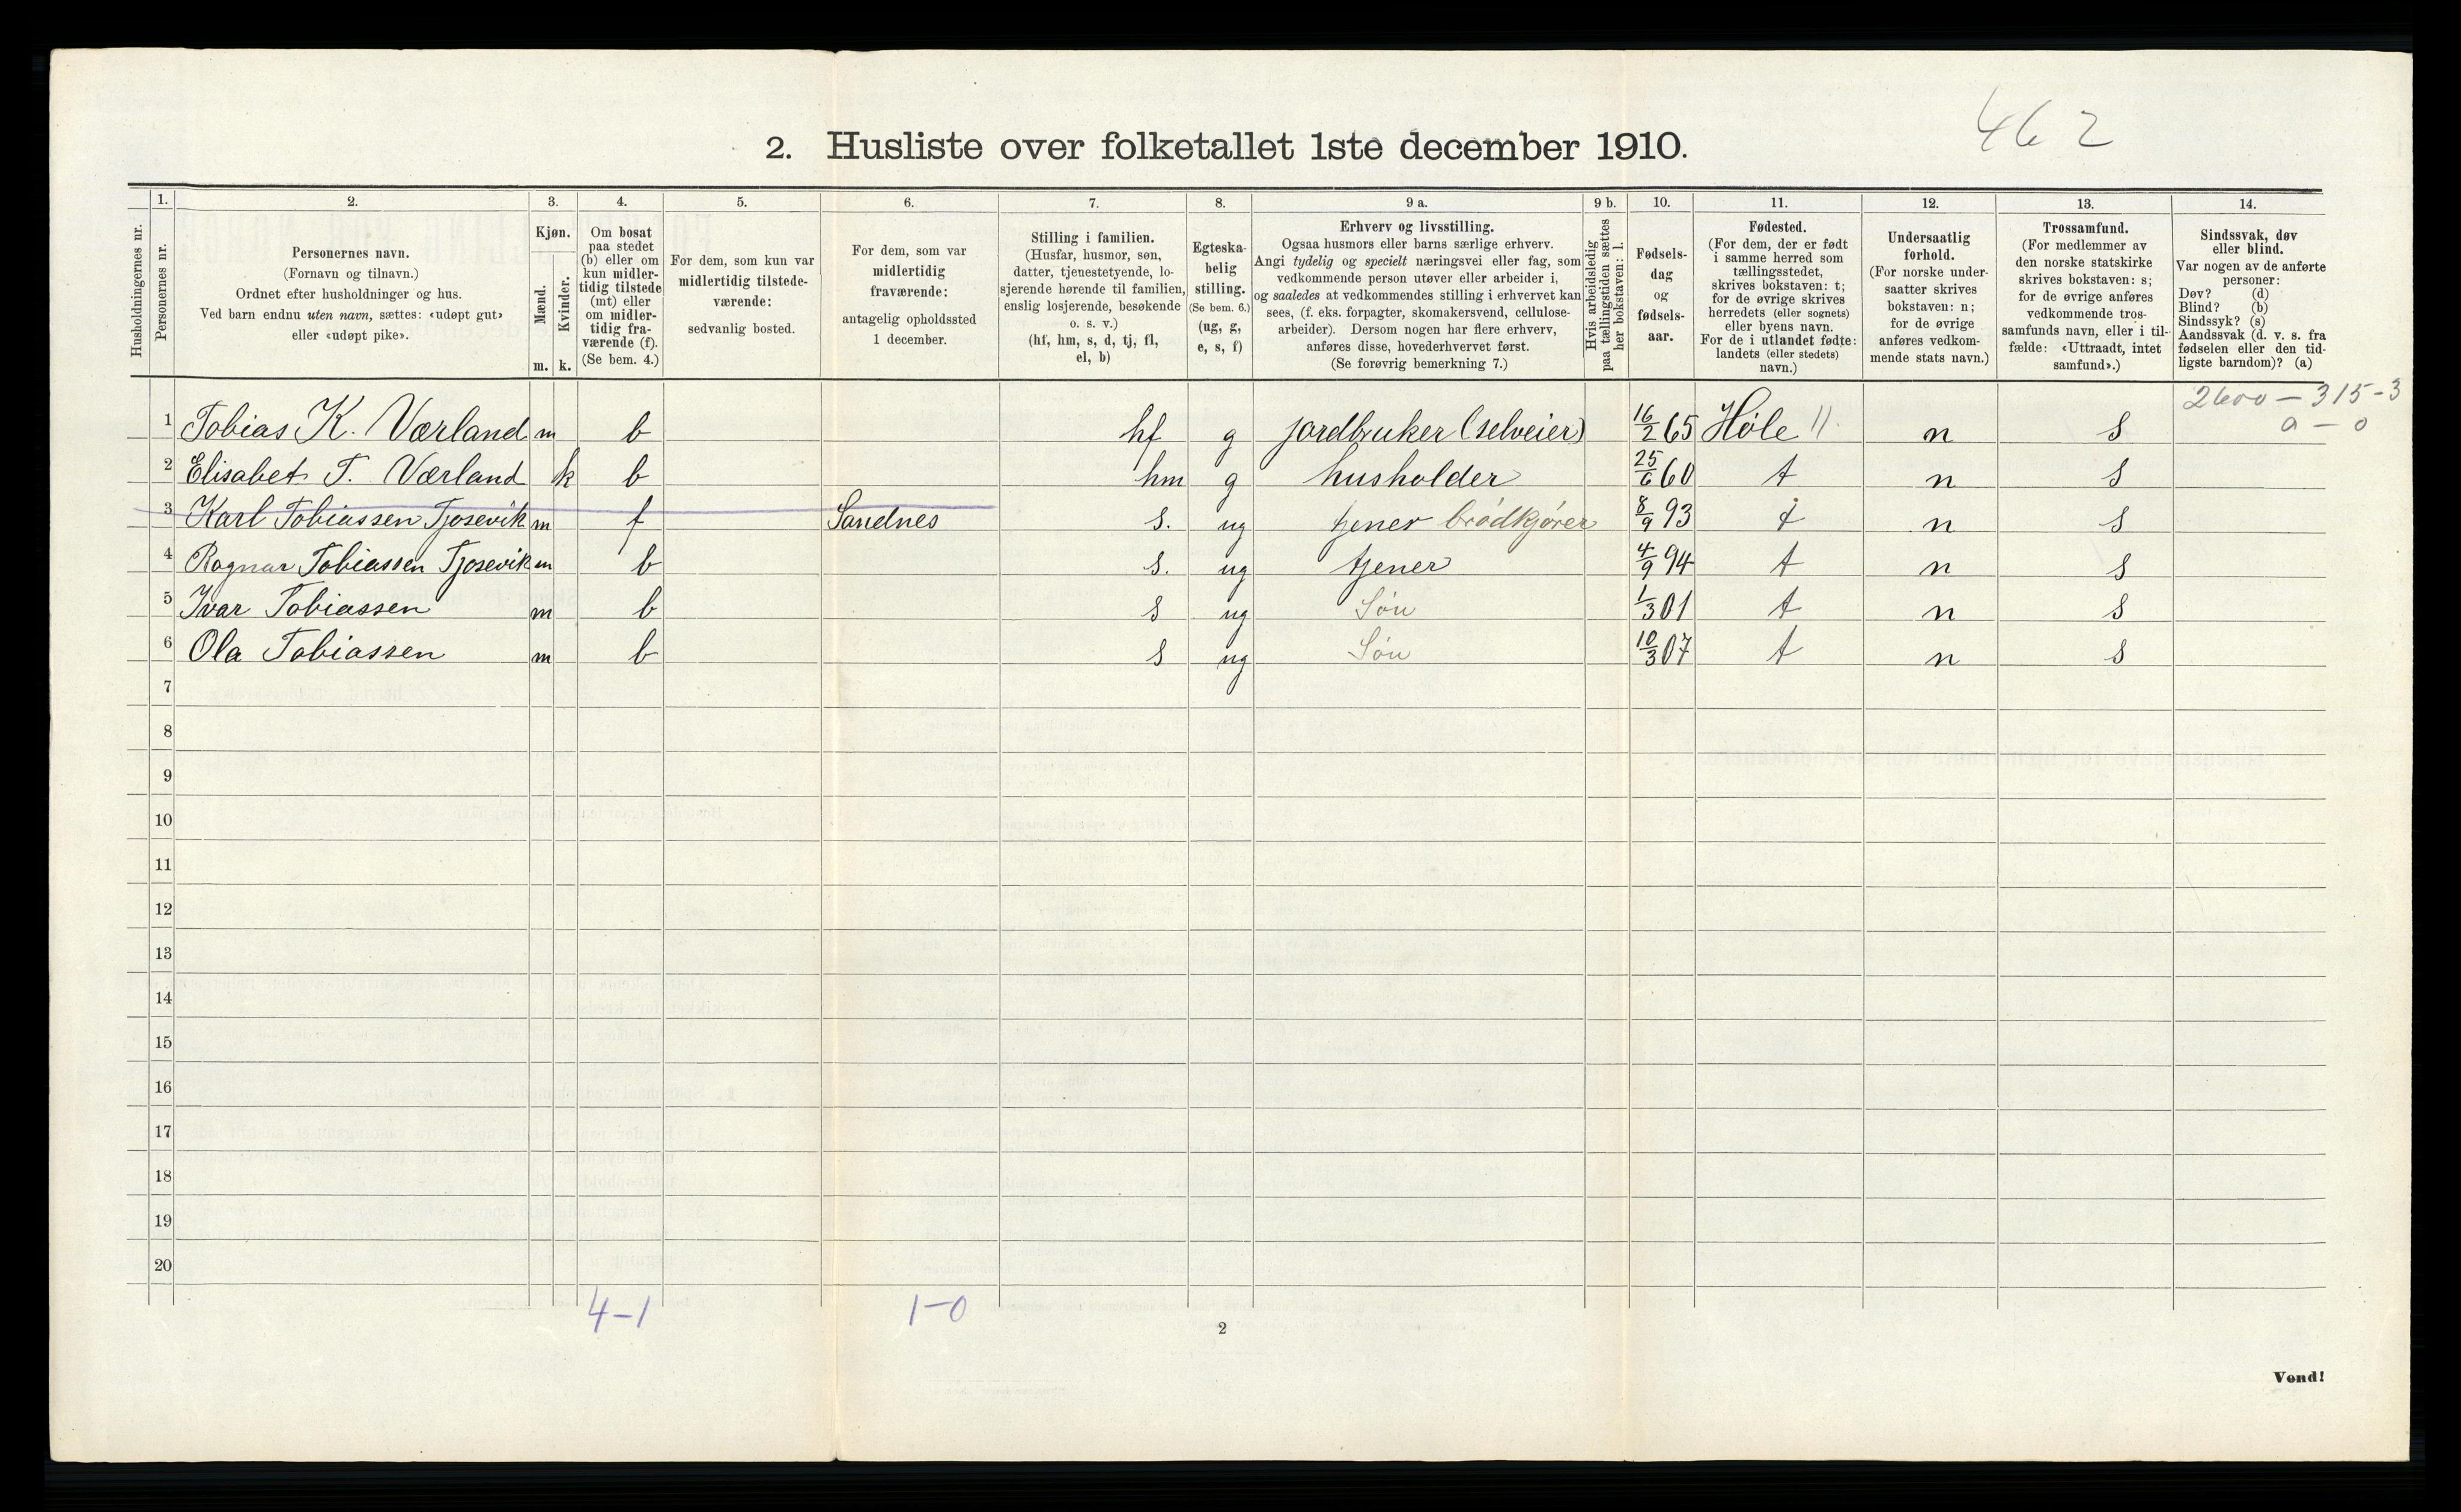 462
2. Husliste over folketallet 1ste december 1910.
Husholdningernes nr.
1.
Personernes nr.
2.
Personernes navn.
(Fornavn og tilnavn.)
Ordnet efter husholdninger og hus.
Ved barn endnu uten navn, sættes: «udøpt gut»
eller «udøpt pike».
3.
Kjøn.
Mænd.
Kvinder.
m. k.
4.
Om bosat
paa stedet
(b) eller om
kun midler-
tidig tilstede
(mt) eller
om midler-
tidig fra-
værende (f).
(Se bem. 4.)
5.
For dem, som kun var
midlertidig tilstede-
værende:
sedvanlig bosted.
6.
For dem, som var
midlertidig
fraværende:
antagelig opholdssted
1 december.
7.
Stilling i familien.
(Husfar, husmor, søn,
datter, tjenestetyende, lo-
sjerende hørende til familien,
enslig losjerende, besøkende
o. s. v.)
(hf, hm, s, d, tj, fl,
el, b)
8.
Egteska-
belig
stilling.
(Se bem. 6.)
(ug, g,
e, s, f)
9 a.
Erhverv og livsstilling.
Ogsaa husmors eller barns særlige erhverv.
Angi tydelig og specielt næringsvei eller fag, som
vedkommende person utøver eller arbeider i,
og saaledes at vedkommendes stilling i erhvervet kan
sees, (f. eks. forpagter, skomakersvend, cellulose-
arbeider). Dersom nogen har flere erhverv,
anføres disse, hovederhvervet først.
(Se forøvrig bemerkning 7.)
9 b.
Hvis arbeidsledig
paa tællingstiden sættes
her bokstaven: l.
10.
Fødsels-
dag
og
fødsels-
aar.
11.
Fødested.
(For dem, der er født
i samme herred som
tællingsstedet,
skrives bokstaven: t;
for de øvrige skrives
herredets (eller sognets)
eller byens navn.
For de i utlandet fødte:
landets (eller stedets)
navn.)
12.
Undersaatlig
forhold.
(For norske under-
saatter skrives
bokstaven: n;
for de øvrige
anføres vedkom-
mende stats navn.)
13.
Trossamfund.
(For medlemmer av
den norske statskirke
skrives bokstaven: s;
for de øvrige anføres
vedkommende tros-
samfunds navn, eller i til-
fælde: «Uttraadt, intet
samfund».)
14.
Sindssvak, døv
eller blind.
Var nogen av de anførte
personer:
Døv? (d)
Blind? (b)
Sindssyk? (s)
Aandssvak (d. v. s. fra
fødselen eller den tid-
ligste barndom)? (a)
2600 — 315-3
a — 0
1 Tobias K. Værland m b hf g jordbruker (selveier) 16/2 65 Høle 11 n s
2 Elisabet T. Værland k b hm g husholder 25/6 60 t n s
3 Karl Tobiassen Tjosevik m f Sandnes s. ug tjener brødkjører 8/9 93 t n s
4 Ragnar Tobiassen Tjosevik m b s. ug tjener 4/9 94 t n s
5 Ivar Tobiassen m b s ug Søn 1/3 01 t n s
6 Ola Tobiassen m b s ug Søn 10/3 07 t n s
7
8
9
10
11
12
13
14
15
16
17
18
19
20
4-1 1-0
2
Vend!